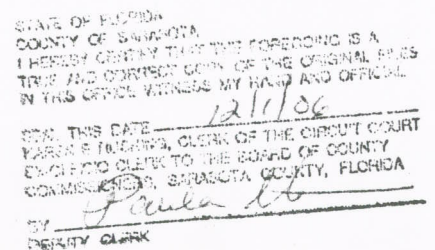 STATE OF FLORIDA
COUNTY OF SARASOTA
I HEREBY CERTIFY THAT THE FOREGOING IS A
TRUE AND CORRECT COPY OF THE ORIGINAL FILES
IN THIS OFFICE WITNESS MY HAND AND OFFICIAL
SEAL THIS DATE 12/1/06
KAREN E RUSHING, CLERK OF THE CIRCUIT COURT
EX-OFFICIO CLERK TO THE BOARD OF COUNTY
COMMISSIONERS, SARASOTA COUNTY, FLORIDA
BY Paula
DEPUTY CLERK